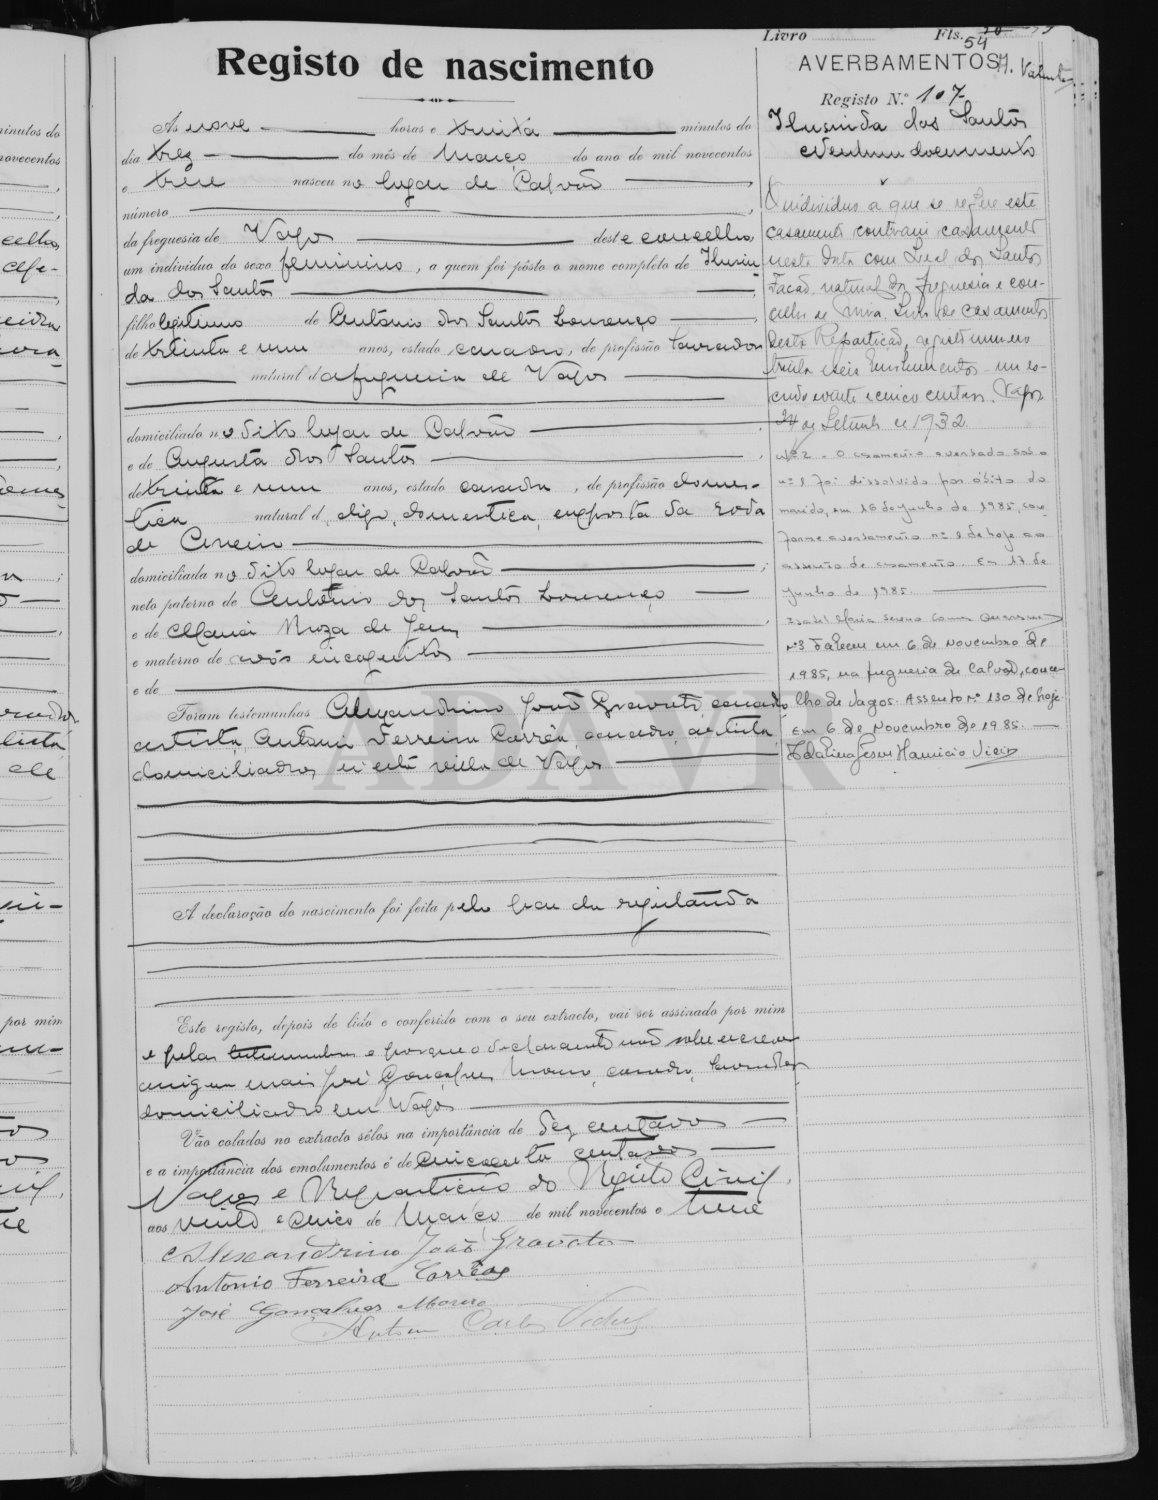 Livro Fls. 54
Registo de nascimento
Ás nove horas e trinta minutos do
dia trez do mês de Março do ano de mil novecentos
e treze nasceu no lugar de Calvão
número
da freguesia de Vagos deste concelho,
um individuo do sexo feminino, a quem foi pôsto o nome completo de Ilusin
da dos Santos
filho legitimo de António dos Santos Lourenço
de trinta e um anos, estado casado, de profissão lavrador
natural da freguesia de Vagos
domiciliado no dito lugar de Calvão
e de Augusta dos Santos
de trinta e um anos, estado casada, de profissão domes-
tica natural d, digo, domestica, exposta da roda
de Aveiro
domiciliada no dito lugar de Calvão
neto paterno de António dos Santos Lourenço
e de Maria Roza de Jesus
e materno de avós incognitos
e de
Foram testemunhas Alexandrino João Gravato, casado
artista, Antonio Ferreira Corrêa, casado, artista
domiciliados n'esta villa de Vagos
A declaração do nascimento foi feita pelo pae da registanda
Este registo, depois de lido e conferido com o seu extracto, vai ser assinado por mim
e pelas testemunhas e porque o declarante não sabe escrever
assigna mais José Gonçalves casado, lavrador
domiciliado em Vagos
Vão colados no extracto sêlos na importância de dez centavos
e a importância dos emolumentos é de cincoenta centavos
Vagos e Repartição do Registo Civil,
aos vinte e cinco de Março de mil novecentos e treze
Alexandrino João Gravato
Antonio Ferreira Corrêa
José Gonçalves
Carlos
AVERBAMENTOS
Registo N.º 107
Ilusinda dos Santos
Nenhum documento
O individuo a que se refere este
casamento contraiu casamento
nesta data com dos Santos
Facão, natural da freguesia e con-
celho de Mira. Livro de casamentos
desta Repartição, registo numero
trinta e seis. Emolumentos - um es-
cudo e vinte e cinco centavos. Vagos
24 de Setembro de 1932.
Nº 2 - O casamento averbado sob o
nº 1 foi dissolvido por óbito do
marido, em 16 de Junho de 1985, con-
forme averbamento nº 1 de hoje ao
assento de casamento. Em 17 de
Junho de 1985.
Isabel Maria
Nº 3 Faleceu em 6 de Novembro de
1985, na freguesia de Calvão, conce-
lho de Vagos. Assento nº 130 de hoje.
Em 6 de Novembro de 1985.
ADAVR